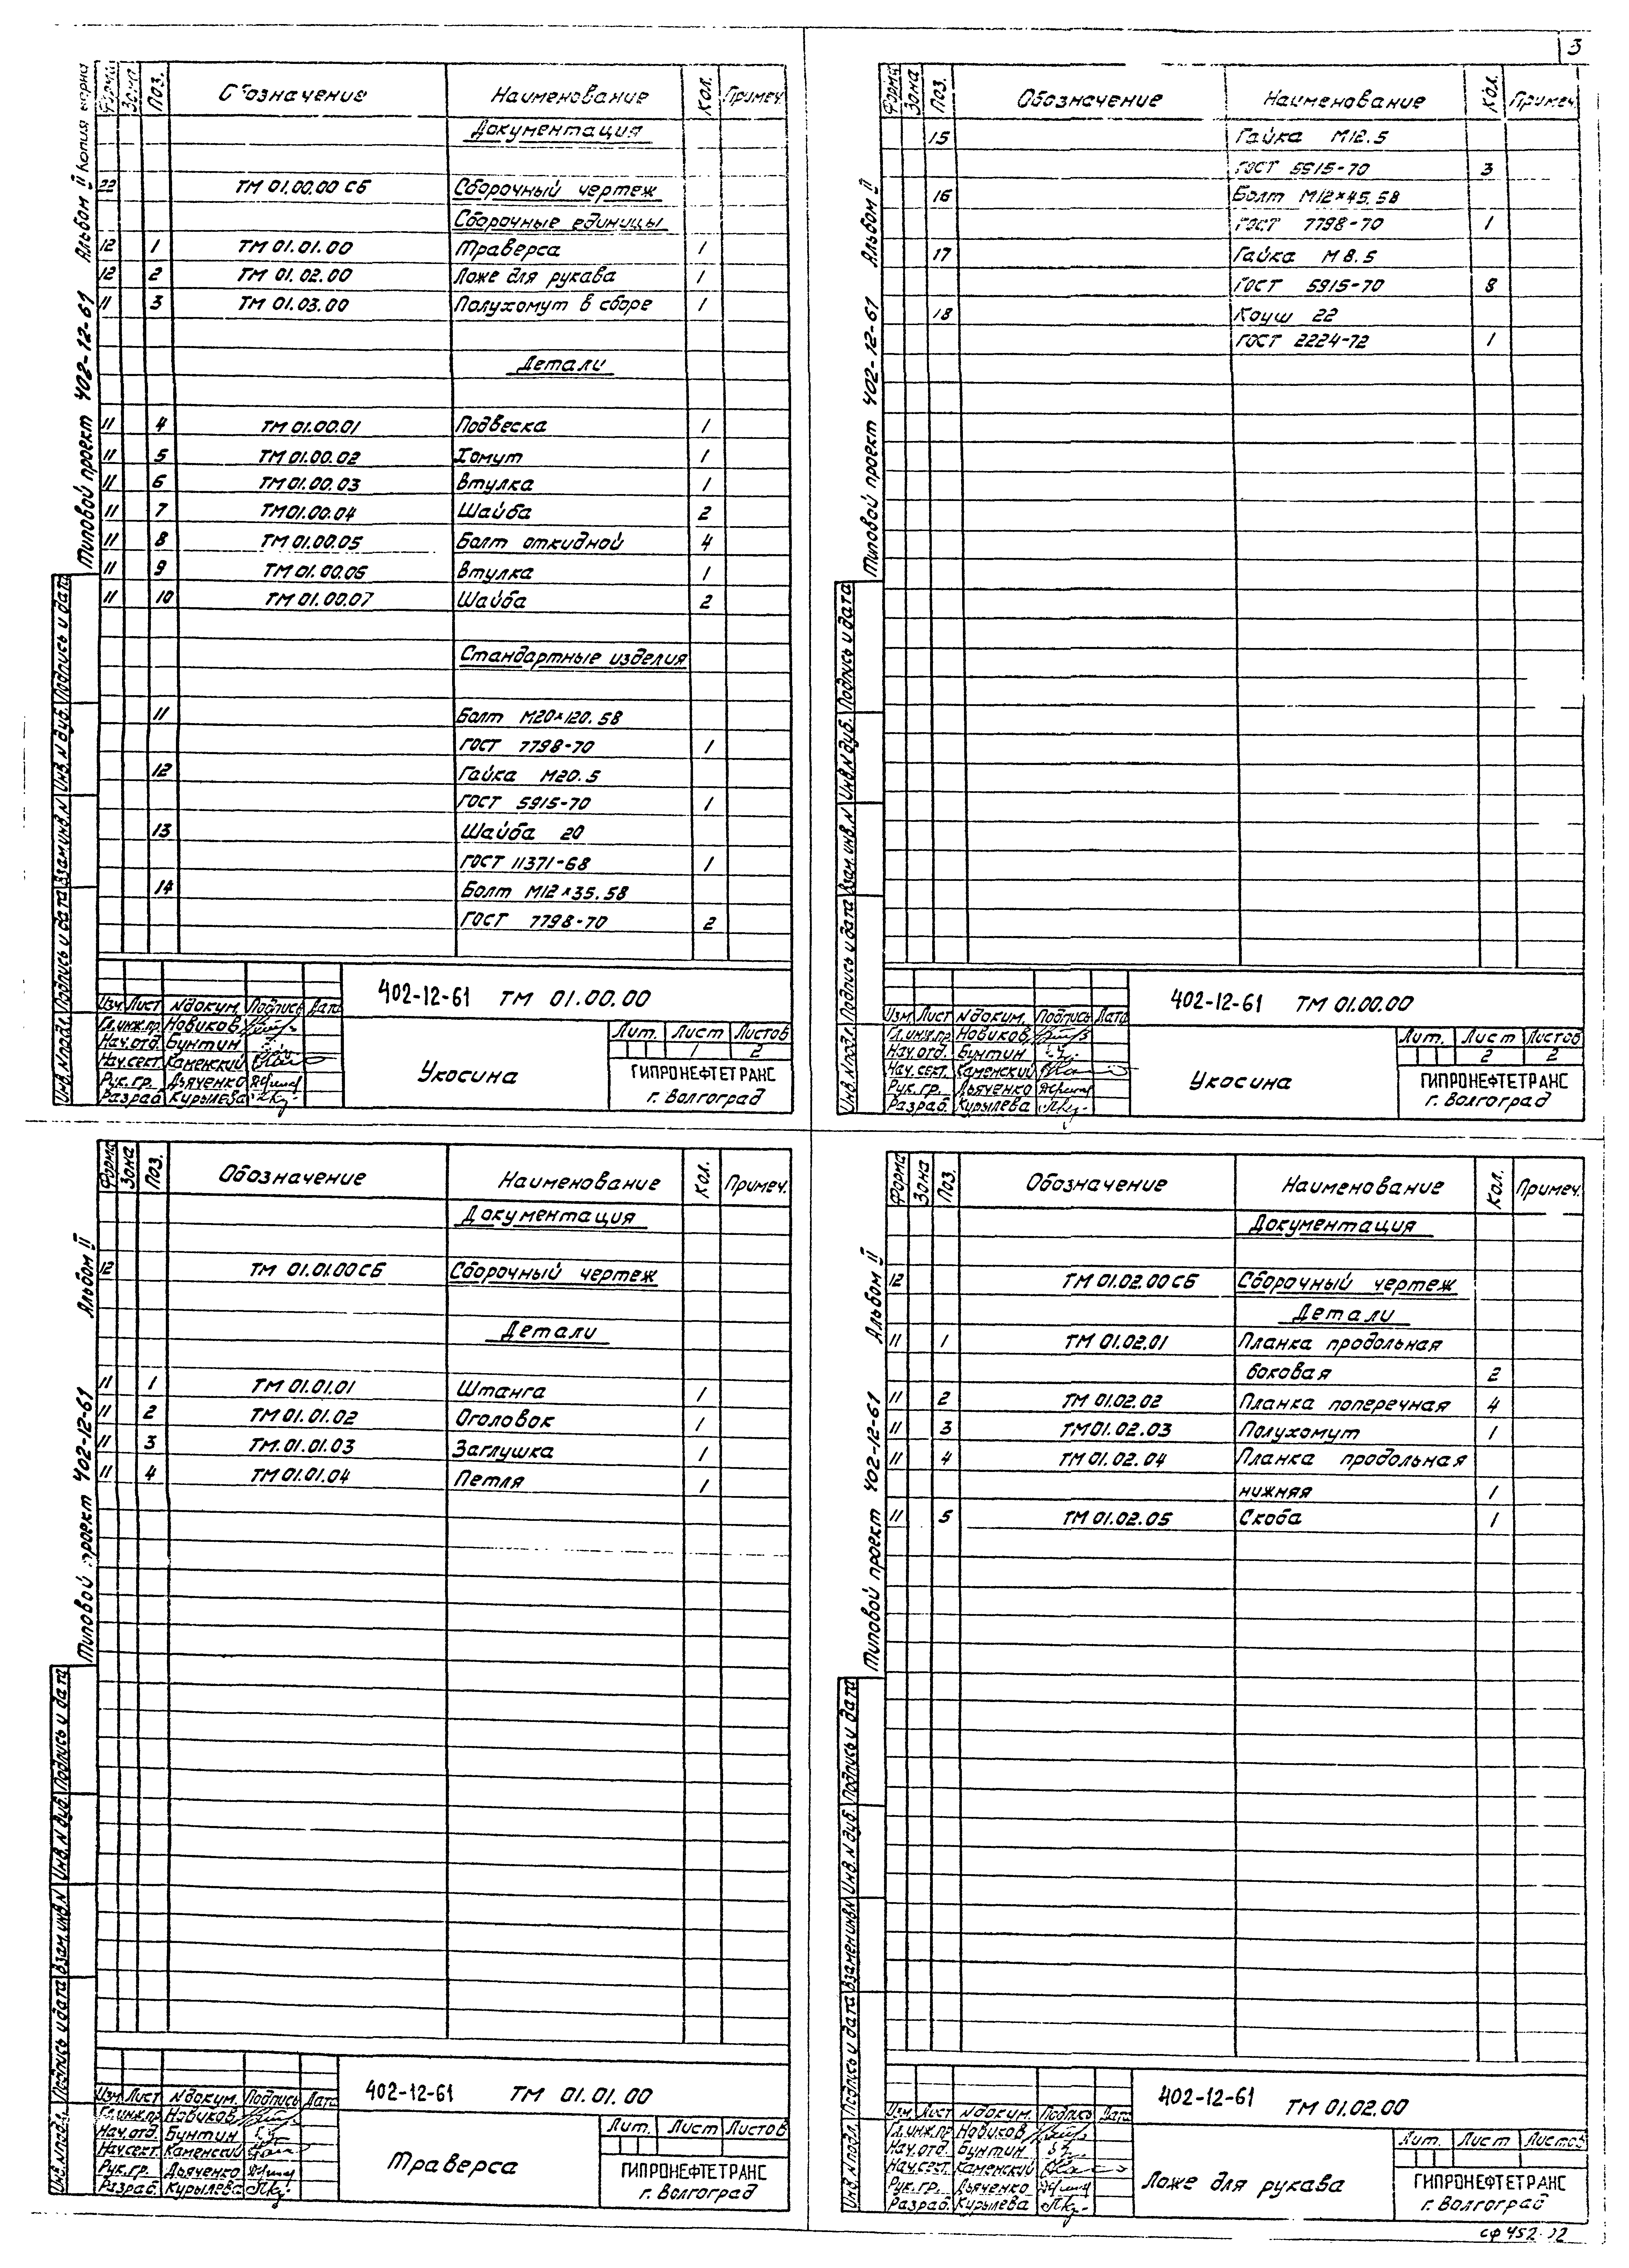 3
Копия верна
Типовой проект 402-12-61 Альбом II
Форма Зона Поз. Обозначение Наименование Кол. Примеч.
Документация
22 ТМ 01.00.00 СБ Сборочный чертеж
Сборочные единицы
12 1 ТМ 01.01.00 Траверса 1
12 2 ТМ 01.02.00 Ложе для рукава 1
11 3 ТМ 01.03.00 Полухомут в сборе 1
Детали
11 4 ТМ 01.00.01 Подвеска 1
11 5 ТМ 01.00.02 Хомут 1
11 6 ТМ 01.00.03 Втулка 1
11 7 ТМ 01.00.04 Шайба 2
11 8 ТМ 01.00.05 Болт откидной 4
11 9 ТМ 01.00.06 Втулка 1
11 10 ТМ 01.00.07 Шайба 2
Стандартные изделия
11 Болт М20×120.58
ГОСТ 7798-70 1
12 Гайка М20.5
ГОСТ 5915-70 1
13 Шайба 20
ГОСТ 11371-68 1
14 Болт М12×35.58
ГОСТ 7798-70 2
Инв.№подл. Подпись и дата Взам.инв.N Инв.N дуб. Подпись и дата
402-12-61 ТМ 01.00.00
Изм. Лист N докум. Подпись Дата
Гл.инж.пр. Новиков
Нач.отд. Бунтин
Нач.сект. Каменский
Рук.гр. Дьяченко
Разраб. Курылева
Укосина
Лит. Лист Листов
1 2
ГИПРОНЕФТЕТРАНС
г. Волгоград
Типовой проект 402-12-61 Альбом II
Форма Зона Поз. Обозначение Наименование Кол. Примеч.
15 Гайка М12.5
ГОСТ 5915-70 3
16 Болт М12×45.58
ГОСТ 7798-70 1
17 Гайка М8.5
ГОСТ 5915-70 8
18 Коуш 22
ГОСТ 2224-72 1
Инв.N подл. Подпись и дата Взам.инв.N Инв.N дуб. Подпись и дата
402-12-61 ТМ 01.00.00
Изм. Лист N докум. Подпись Дата
Гл.инж.пр. Новиков
Нач.отд. Бунтин
Нач.сект. Каменский
Рук.гр. Дьяченко
Разраб. Курылева
Укосина
Лит. Лист Листов
2 2
ГИПРОНЕФТЕТРАНС
г. Волгоград
Типовой проект 402-12-61 Альбом II
Форма Зона Поз. Обозначение Наименование Кол. Примеч.
Документация
12 ТМ 01.01.00 СБ Сборочный чертеж
Детали
11 1 ТМ 01.01.01 Штанга 1
11 2 ТМ 01.01.02 Оголовок 1
11 3 ТМ.01.01.03 Заглушка 1
11 4 ТМ 01.01.04 Петля 1
Инв.N подл. Подпись и дата Взам.инв.N Инв.N дуб. Подпись и дата
402-12-61 ТМ 01.01.00
Изм. Лист N докум. Подпись Дата
Гл.инж.пр. Новиков
Нач.отд. Бунтин
Нач.сект. Каменский
Рук.гр. Дьяченко
Разраб. Курылева
Траверса
Лит. Лист Листов
ГИПРОНЕФТЕТРАНС
г. Волгоград
Типовой проект 402-12-61 Альбом II
Форма Зона Поз. Обозначение Наименование Кол. Примеч.
Документация
12 ТМ 01.02.00 СБ Сборочный чертеж
Детали
11 1 ТМ 01.02.01 Планка продольная
боковая 2
11 2 ТМ 01.02.02 Планка поперечная 4
11 3 ТМ 01.02.03 Полухомут 1
11 4 ТМ 01.02.04 Планка продольная
нижняя 1
11 5 ТМ 01.02.05 Скоба 1
Инв.N подл. Подпись и дата Взамен инв.N Инв.N дуб. Подпись и дата
402-12-61 ТМ 01.02.00
Изм. Лист N докум. Подпись Дата
Гл.инж.пр. Новиков
Нач.отд. Бунтин
Нач.сект. Каменский
Рук.гр. Дьяченко
Разраб. Курылева
Ложе для рукава
Лит. Лист Листов
ГИПРОНЕФТЕТРАНС
г. Волгоград